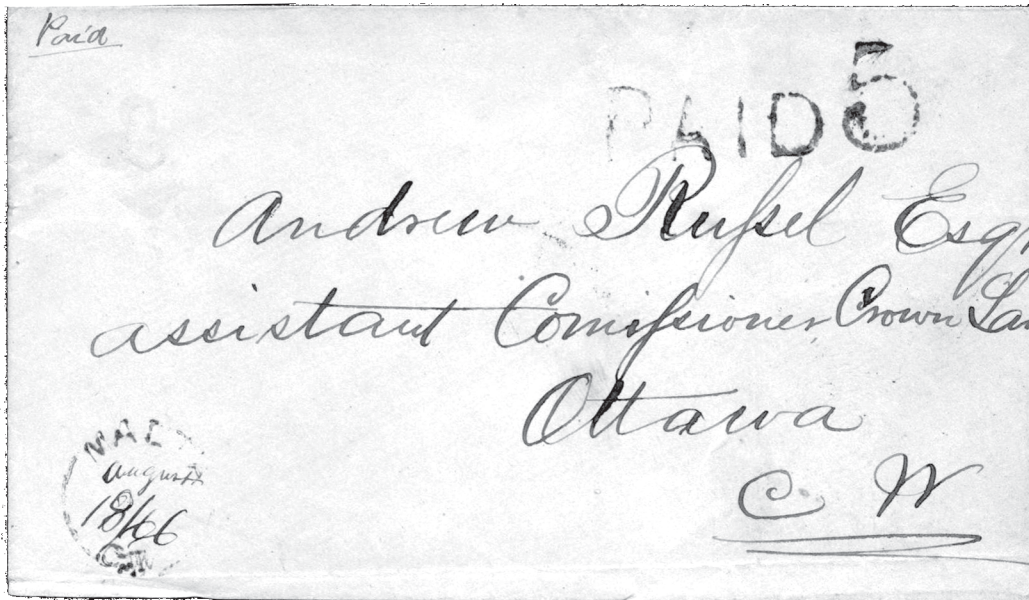 Paid
PAID 5
Andrew Russel Esqr
assistant Comissioner Crown Lan
Ottawa
C W
august
18/66
C.W